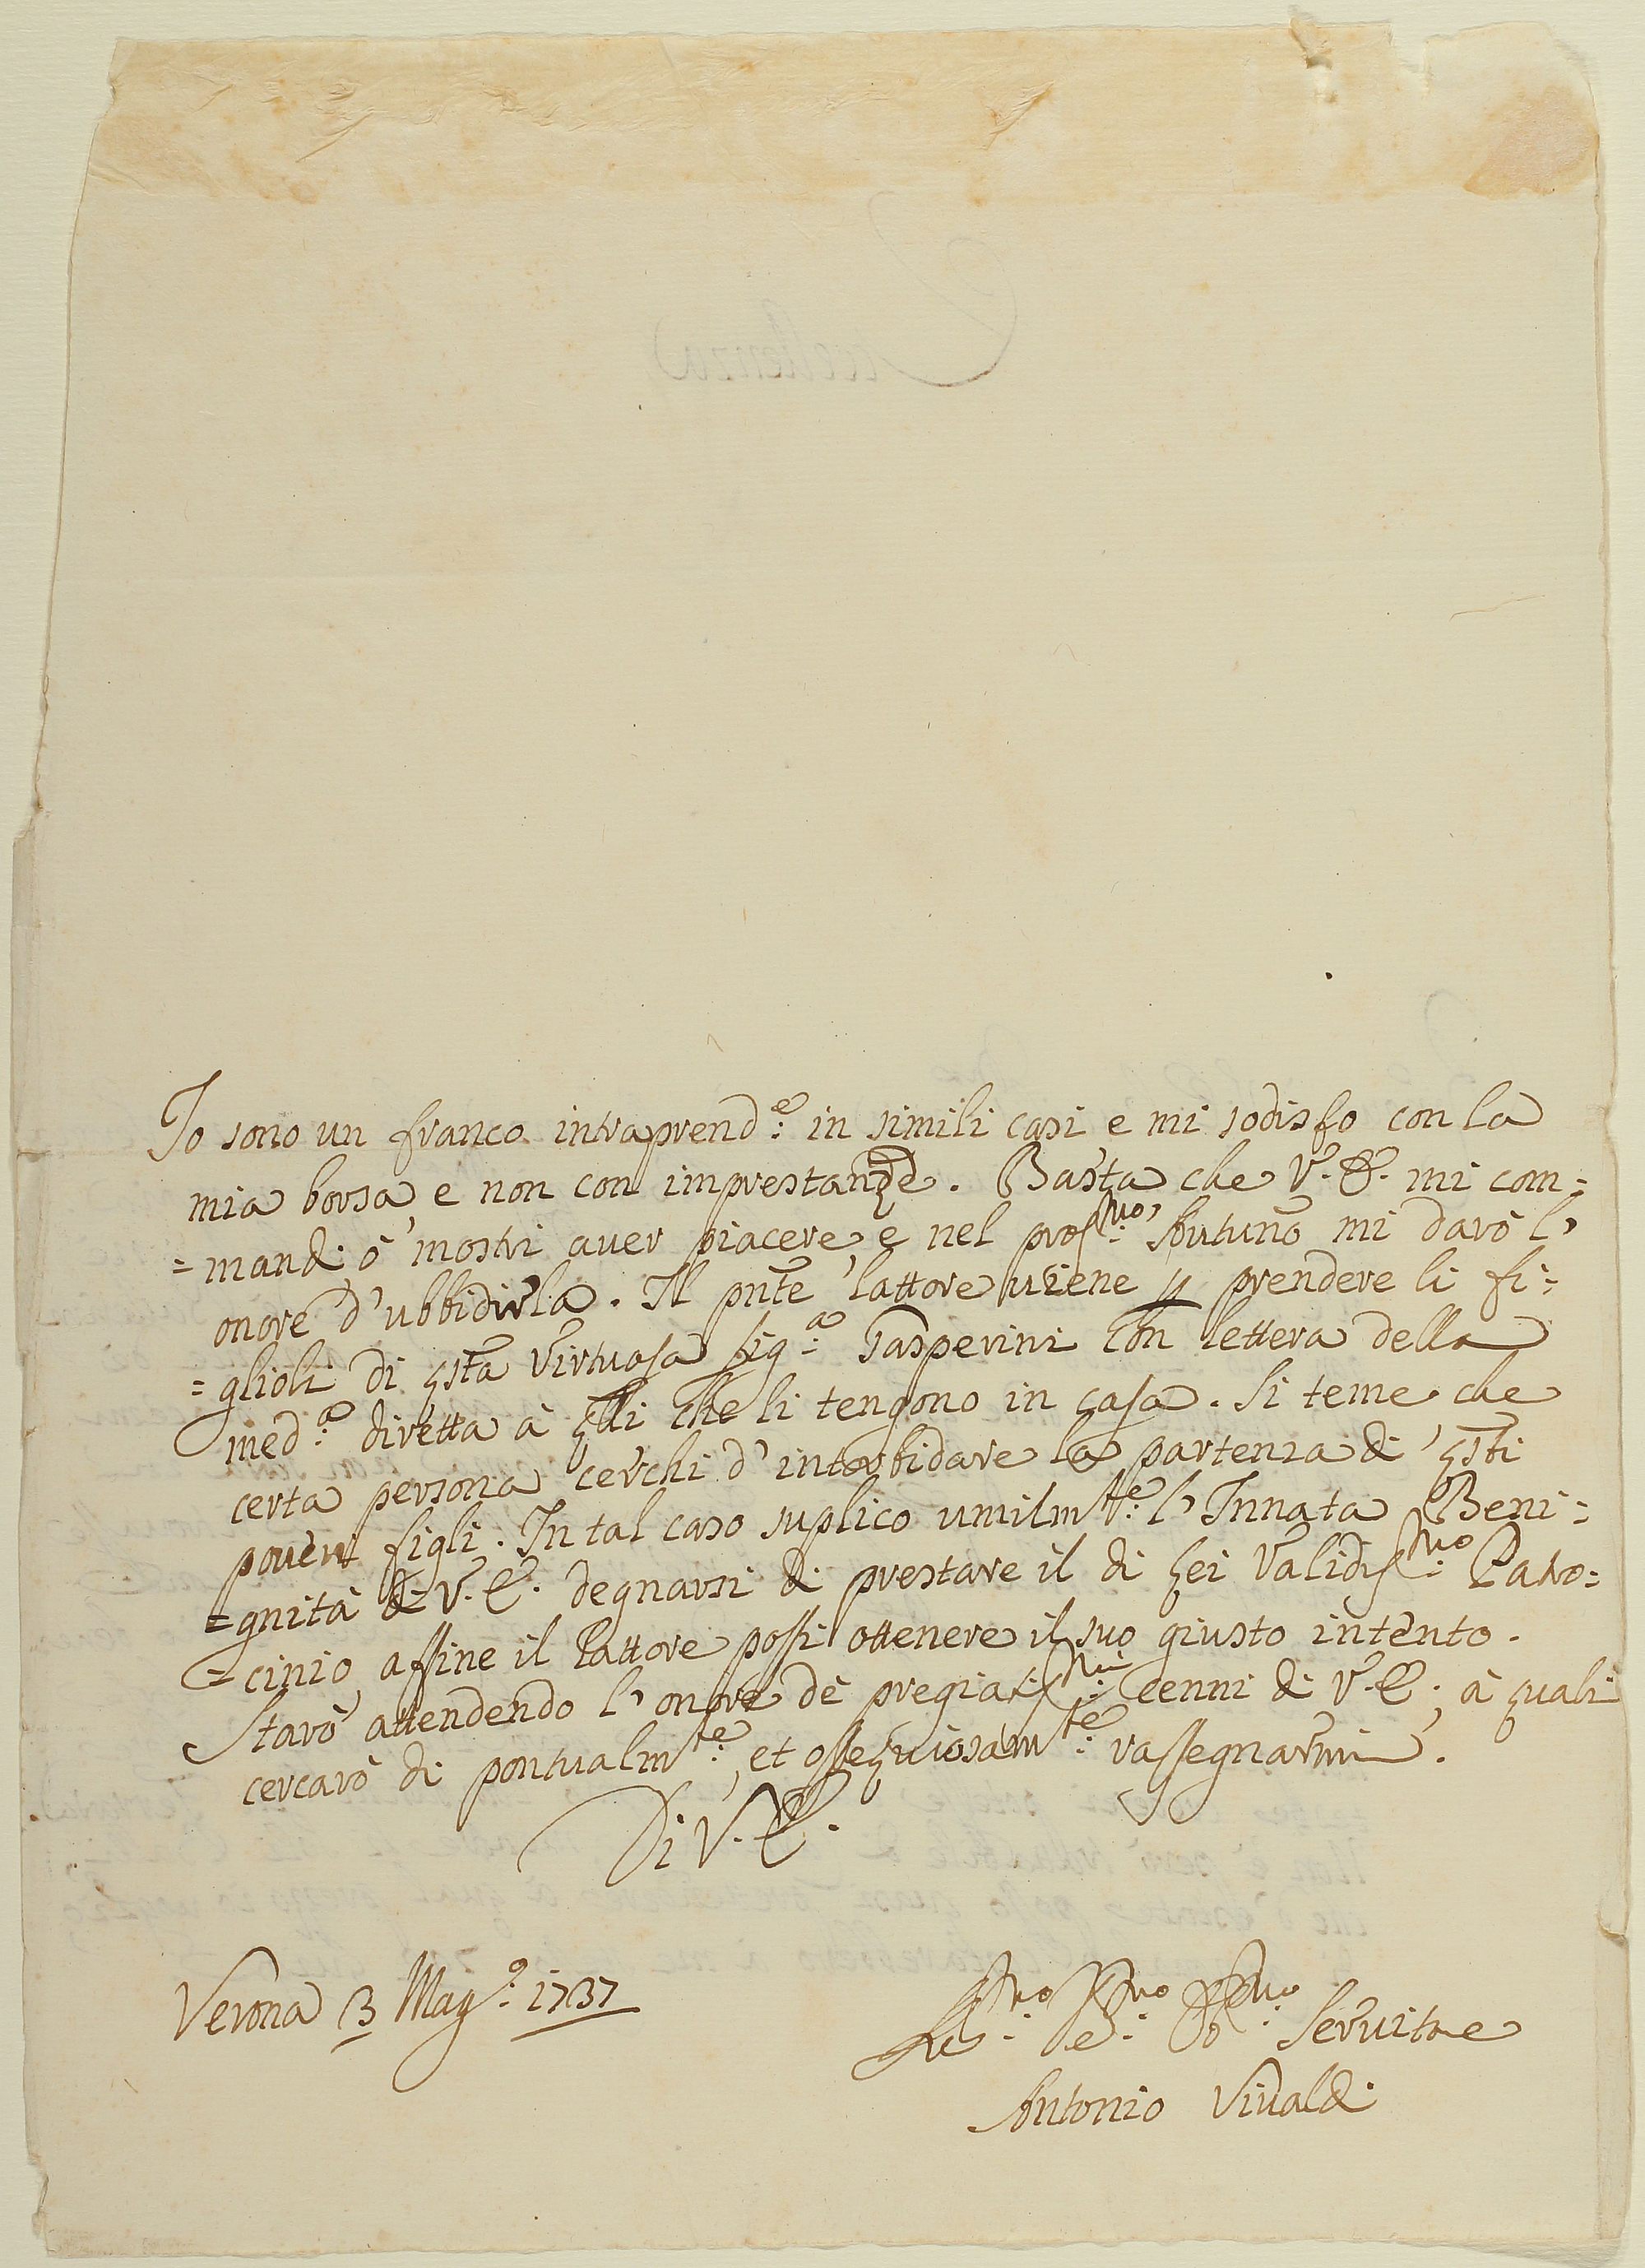 Io sono un franco intraprend:e in simili casi e mi sodisfo con la
mia borsa, e non con imprestanze. Basta che V. E. mi com=
=mandi ò mostri aver piacere, e nel pross:mo Autuño mi darò l'
onore d'ubbidirla. Il pñte lattore viene p prendere li fi=
=glioli di qsta Virtuosa sig:a Gasperini con lettera della
med:a diretta à qlli che li tengono in casa. Si teme che
certa persona cerchi d'intorbidare la partenza di qsti
poveri figli. In tal caso suplico umilm:te l'Innata Beni=
=gnità di V. E. degnarsi di prestare il di Lei Validiss:mo Patro=
=cinio affine il Lattore possi ottenere il suo giusto intento.
Starò attendendo l'onore dè pregiatiss:mi Cenni di V. E., à quali
cercarò di pontualm:te, et ossequiosam:te rassegnarmi.
Di V. E.
Verona 3 Mag:o 1737
Servitre
Antonio Vivaldi